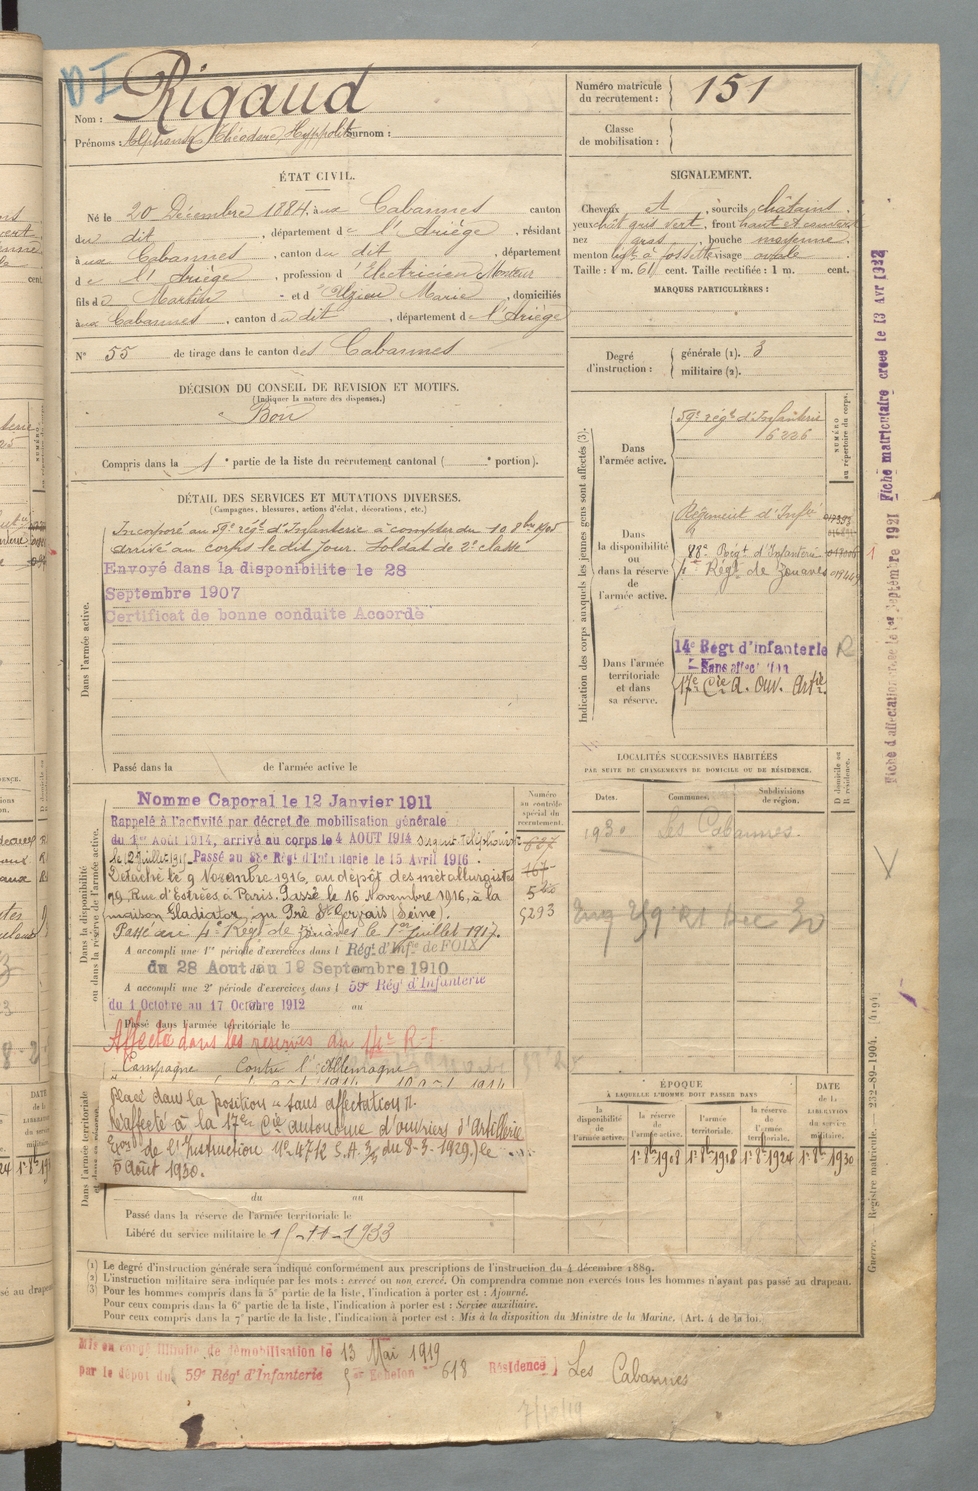 DI
Nom : Rigaud
Prénoms : Alphonse, Théodore, Hyppolite Surnom :
Numéro matricule
du recrutement : 151
Classe
de mobilisation :
ÉTAT CIVIL.
Né le 20 Décembre 1884, à aux Cabannes canton
du dit, département de l'Ariège, résidant
à aux Cabannes, canton du dit, département
de l'Ariège, profession d'Electricien Monteur
fils de Martin et d'Alzieu Marie, domiciliés
à aux Cabannes, canton du dit, département de l'Ariège
N° 55 de tirage dans le canton des Cabannes
SIGNALEMENT.
Cheveux et, sourcils châtains,
yeux gris vert, front haut et
nez gros, bouche moyenne,
menton à fossette visage ovale
Taille : 1 m. 61 cent. Taille rectifiée : 1 m. cent.
MARQUES PARTICULIÈRES :
Degré
d'instruction :
générale (1). 3
militaire (2).
DÉCISION DU CONSEIL DE REVISION ET MOTIFS.
(Indiquer la nature des dispenses.)
Bon
Compris dans la 1e partie de la liste du recrutement cantonal ( e portion).
DÉTAIL DES SERVICES ET MUTATIONS DIVERSES.
(Campagnes, blessures, actions d'éclat, décorations, etc.)
Dans l'armée active.
Incorporé au 59e régt d'Infanterie à compter du 10 8bre 1905
arrivé au corps le dit jour. Soldat de 2e classe
Envoyé dans la disponibilite le 28
Septembre 1907
Certificat de bonne conduite Accordé
Passé dans la de l'armée active le
Indication des corps auxquels les jeunes gens sont affectés (3).
NUMÉRO
au répertoire du corps.
Dans
l'armée active.
59e régt d'Infanterie
6226
Dans
la disponibilité
ou
dans la réserve
de
l'armée active.
Régiment d'Infie
88e Regt d'Infanterie
4e Régt de Zouaves
Dans l'armée
territoriale
et dans
sa réserve.
14e Régt d'Infanterie R
Sans affectation
17e Cie A. Ouv. Artie.
Dans la disponibilité
ou dans la réserve de l'armée active.
Numéro
au contrôle
spécial du
recrutement.
Nommé Caporal le 12 Janvier 1911
Rappelé à l'activité par décret de mobilisation générale
du 1er Août 1914, arrivé au corps le 4 AOUT 1914 Sergent Téléphoniste 607
le 12 Juillet 1915 Passé au 88e Régt d'Infanterie le 15 Avril 1916.
Détaché le 9 Novembre 1916, au dépôt des métallurgistes 167
99, Rue d'Estrées à Paris. Passé le 16 Novembre 1916, à la
maison Gladiator, au Pré St Gervais (Seine). 5293
Passé au 4e Régt de Zouaves le 1er Juillet 1917.
A accompli une 1re période d'exercices dans l Régt d'Infie de FOIX
du 28 Aout au 19 Septembre 1910
A accompli une 2e période d'exercices dans l 59e Régt d'Infanterie
du 1 Octobre au 17 Octobre 1912 au
Passé dans l'armée territoriale le
Affecté dans les réserves du 14e R.I.
Campagne Contre l'Allemagne
Dans l'armée territoriale
Placé dans la position "sans affectation".
Réaffecté à la 17e Cie autonome d'ouvriers d'Artillerie
de l'Instruction N° 47K S.A. 3/5 du 8-3-1929.) le
5 Août 1930.
du au
Passé dans la réserve de l'armée territoriale le
Libéré du service militaire le 15-11-1933
LOCALITÉS SUCCESSIVES HABITÉES
PAR SUITE DE CHANGEMENTS DE DOMICILE OU DE RÉSIDENCE.
D domicile ou
R résidence.
Dates. Communes. Subdivisions
de région.
1930 Les Cabannes.
ÉPOQUE
À LAQUELLE L'HOMME DOIT PASSER DANS
DATE
de la
LIBÉRATION
du service
militaire.
la
disponibilité
de
l'armée active.
la réserve
de
l'armée active.
l'armée
territoriale.
la réserve
de
l'armée
territoriale.
1er 8bre 1908 1er 8bre 1918 1er 8bre 1924 1er 8bre 1930
(1) Le degré d'instruction générale sera indiqué conformément aux prescriptions de l'instruction du 4 décembre 1889.
(2) L'instruction militaire sera indiquée par les mots : exercé ou non exercé. On comprendra comme non exercés tous les hommes n'ayant pas passé au drapeau.
(3) Pour les hommes compris dans la 5e partie de la liste, l'indication à porter est : Ajourné.
Pour ceux compris dans la 6e partie de la liste, l'indication à porter est : Service auxiliaire.
Pour ceux compris dans la 7e partie de la liste, l'indication à porter est : Mis à la disposition du Ministre de la Marine. (Art. 4 de la loi.
Mis en congé illimité de démobilisation le 13 Mai 1919
par le dépôt du 59e Régt d'Infanterie Echelon 618 Résidence Les Cabannes
7/10/19
Fiche d'affectation le 1er Septembre 1921 Fiche matriculaire creee le 13 Avr 1932
Guerre. — Registre matricule. — 232-89-1904. [4194]